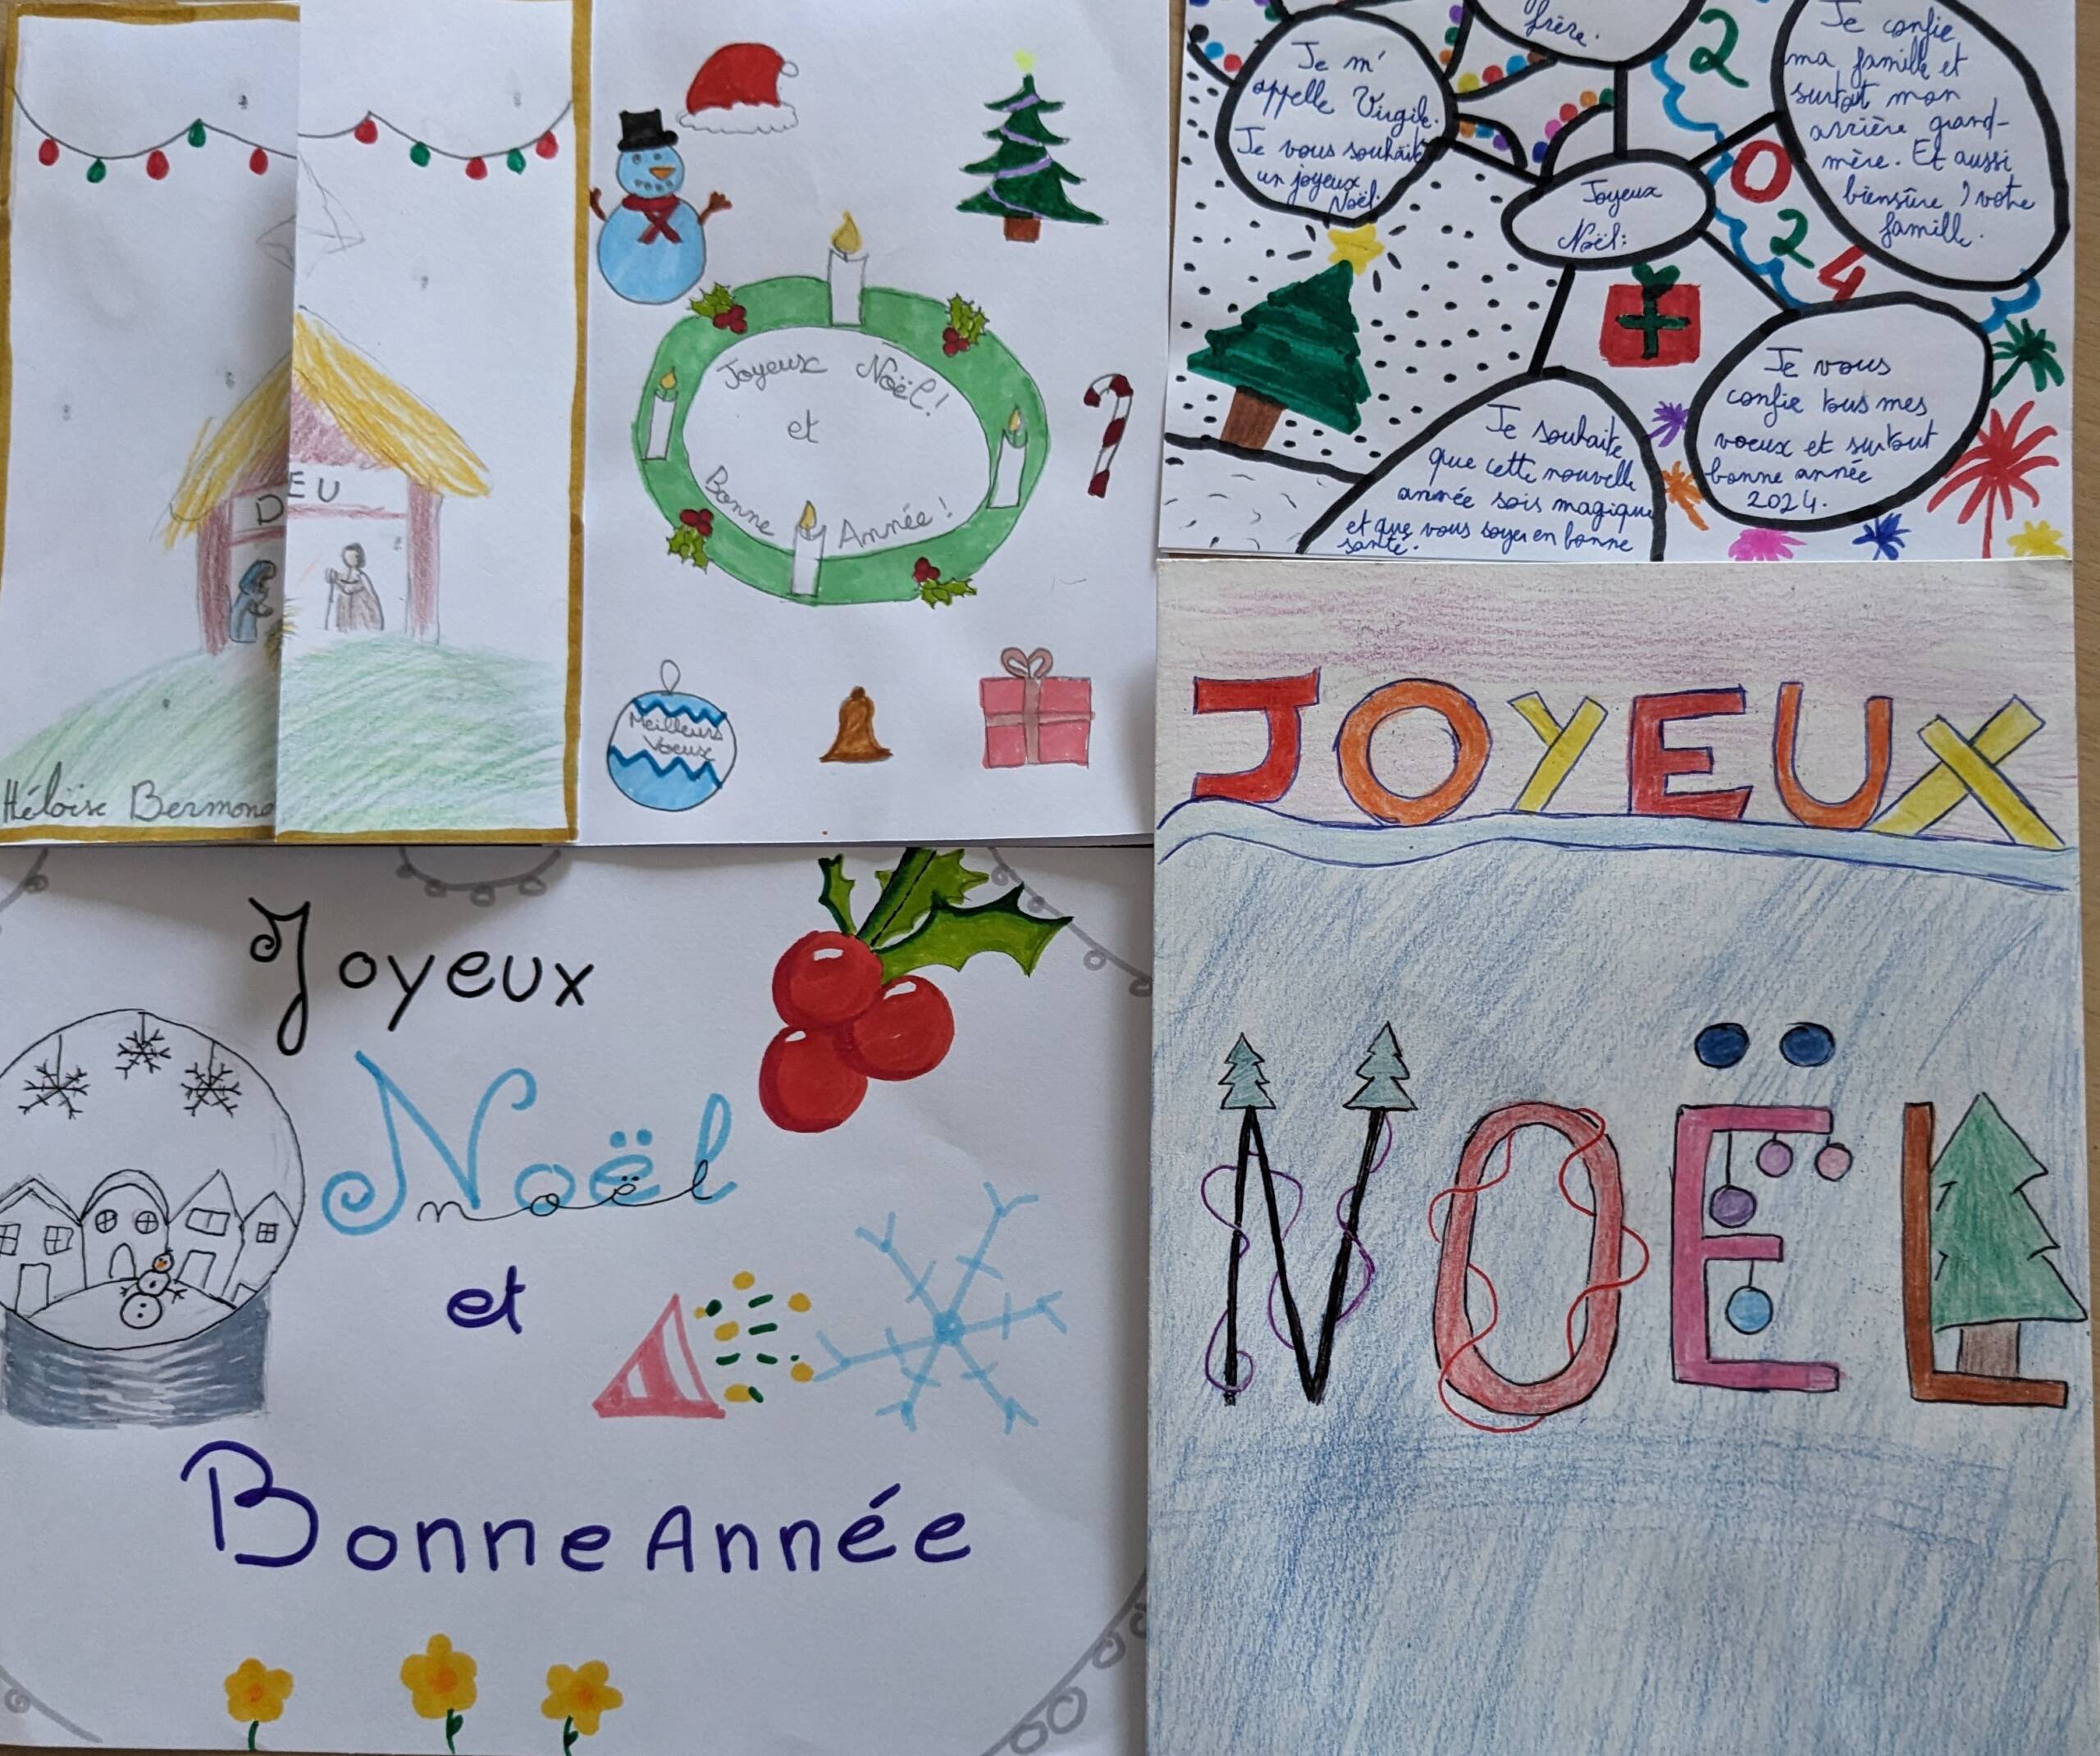 DEU
Héloïse Bermond
Joyeux Noël!
et
Bonne Année!
Meilleurs
Voeux
frère.
Je m'
appelle Virgile.
Je vous souhaite
un joyeux
Noël.
Joyeux
Noël:
2
0
2
4
Je confie
ma famille et
surtout mon
arrière grand-
mère. Et aussi
biensûre ) votre
famille.
Je vous
confie tous mes
voeux et surtout
bonne année
2024.
Je souhaite
que cette nouvelle
année sois magique
et que vous soyer en bonne
santé.
JOYEUX
NOËL
Joyeux
Noël
noël
et
Bonne Année